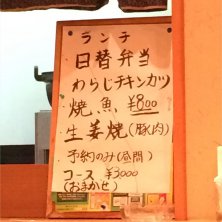 ランチ
日替弁当
わらじチキンカツ
焼魚 ¥800
生姜焼(豚肉)
予約のみ(昼間)
コース ¥3000
(おまかせ)